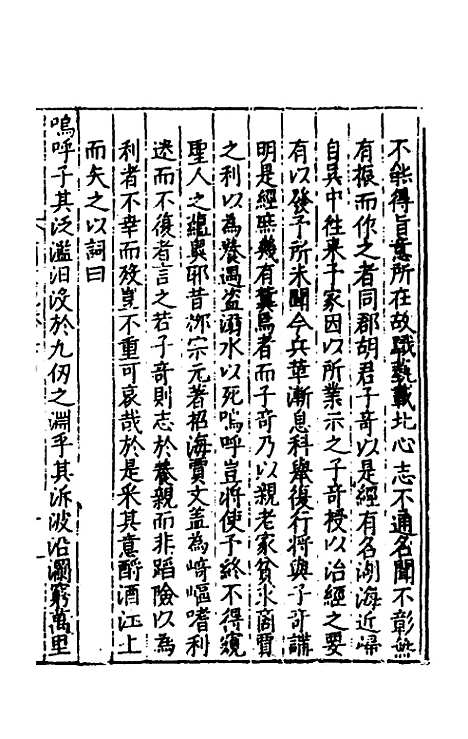 不能得旨意所在故職藝戴圮心志不通名聞不彰無
有振而作之者同郡胡君子奇以是經有名湖海近歸
自吳中往来予家因以所業示之子奇授以治經之要
有以發予所未聞今兵革漸息科舉復行將與子奇講
明是經庶幾有冀焉者而子奇乃以親老家貧氷商賈
之利以為養遇盗溺水以死嗚呼豈將使予終不得窺
聖人之蘊奥耶昔栁宗元著招海賈文盖為﨑嶇嗜利
迷而不復者言之若子竒則志於養親而非蹈險以為
利者不幸而歿豈不重可哀哉於是采其意酹酒江上
而矢之以詞曰
嗚呼子其泛濫汩没於九仭之淵乎其泝波沿瀾窮萬里